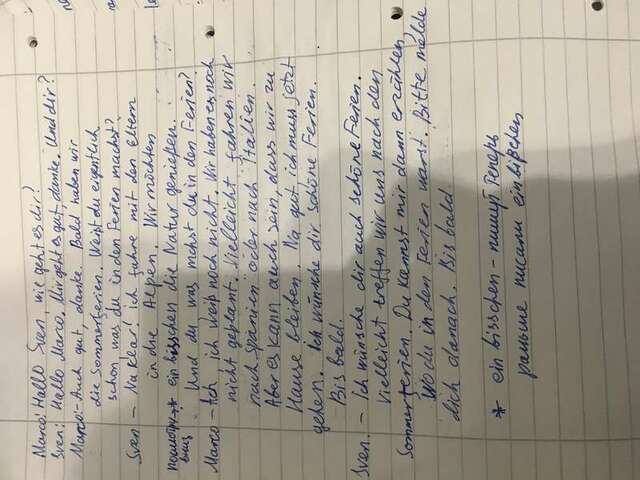 Marco: Hallo Sven, wie geht es dir?
Sven: Hallo Marco, Mir geht es gut, danke. Und dir?
Marco - Auch gut, danke. Bald haben wir
die Sommerferien. Weist du eigentlich
schon was du in den Ferien machst?
Sven - Na klar! ich fahre mit den Eltern
in die Alpen. Wir möchten
* ein bisschen die Natur genießen.
Und du was machst du in den Ferien?
Marco - Ach ich weiß noch nicht. Wir haben es noch
nicht geplant. Vielleicht fahren wir
nach Spanien oder nach Italien.
Aber es kann auch sein dass wir zu
Hause bleiben. Na gut ich muss jetzt
gehen. Ich wünsche dir schöne Ferien.
Bis bald.
Sven. - Ich wünsche dir auch schöne Ferien.
Vielleicht treffen wir uns nach den
Sommerferien. Du kannst mir dann erzählen
Wo du in den Ferien warst. Bitte melde
dich danach. Bis bald
* ein bisschen - пишут теперь
раньше писали ein bißchen